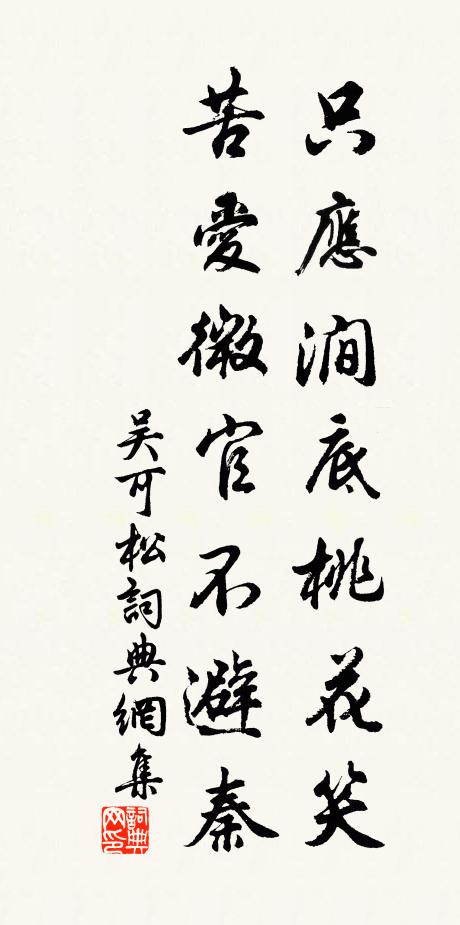 只應澗底桃花笑
苦愛微官不避秦
吳可松詞典網集
詞典網印